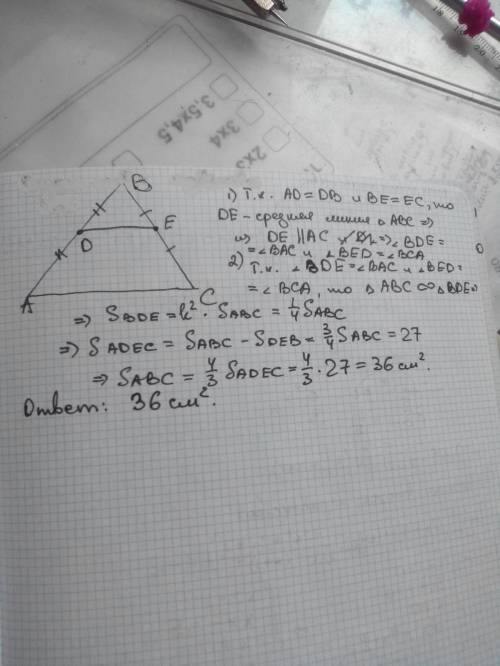 3,5x4,5
3x4
2x3
B
D
E
A
C
1) Т.к. AD=DB и BE=EC, то
DE-средняя линия △ABC =>
=> DE ∥ AC => ∠BDE=
=∠BAC и ∠BED=∠BCA
2) Т.к. ∠BDE=∠BAC и ∠BED=
=∠BCA, то △ABC ∞ △BDE =>
=> S BDE = k². S ABC = 1/4 S ABC
=> S ADEC = S ABC - S DEB = 3/4 S ABC = 27
=> S ABC = 4/3 S ADEC = 4/3 · 27 = 36 см².
Ответ: 36 см².